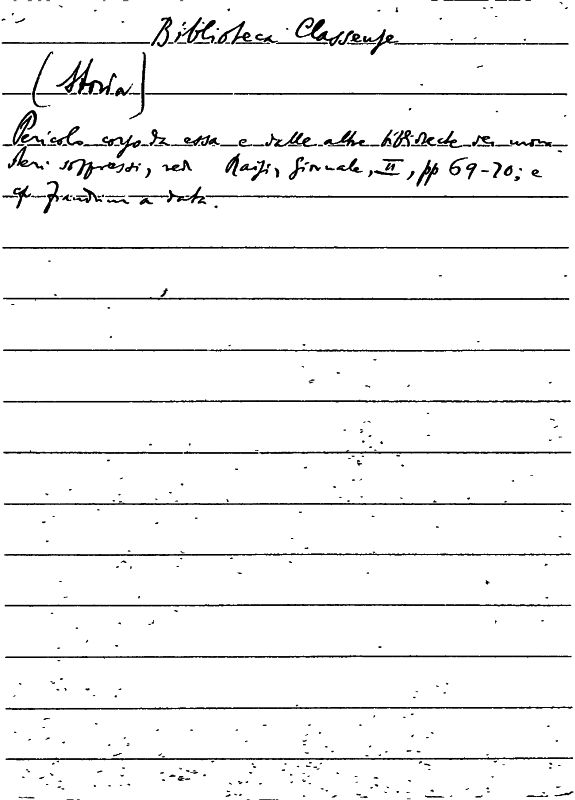 Biblioteca Classense
(Storia)
Pericolo corso da essa e dalle altre biblioteche dei mona-
steri soppressi, ved. Raisi, Giornale, II, pp 69-70; e
a data.